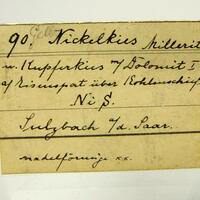 90. Nickelkies Millerit
m. Kupferkies auf Dolomit I
auf Eisenspat über Kohlenschief
Ni S.
Sulzbach a/d. Saar.
nadelförmige xx.